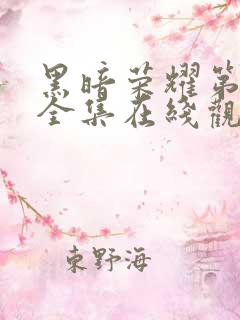 黑暗荣耀第
全集在线觀
東野海